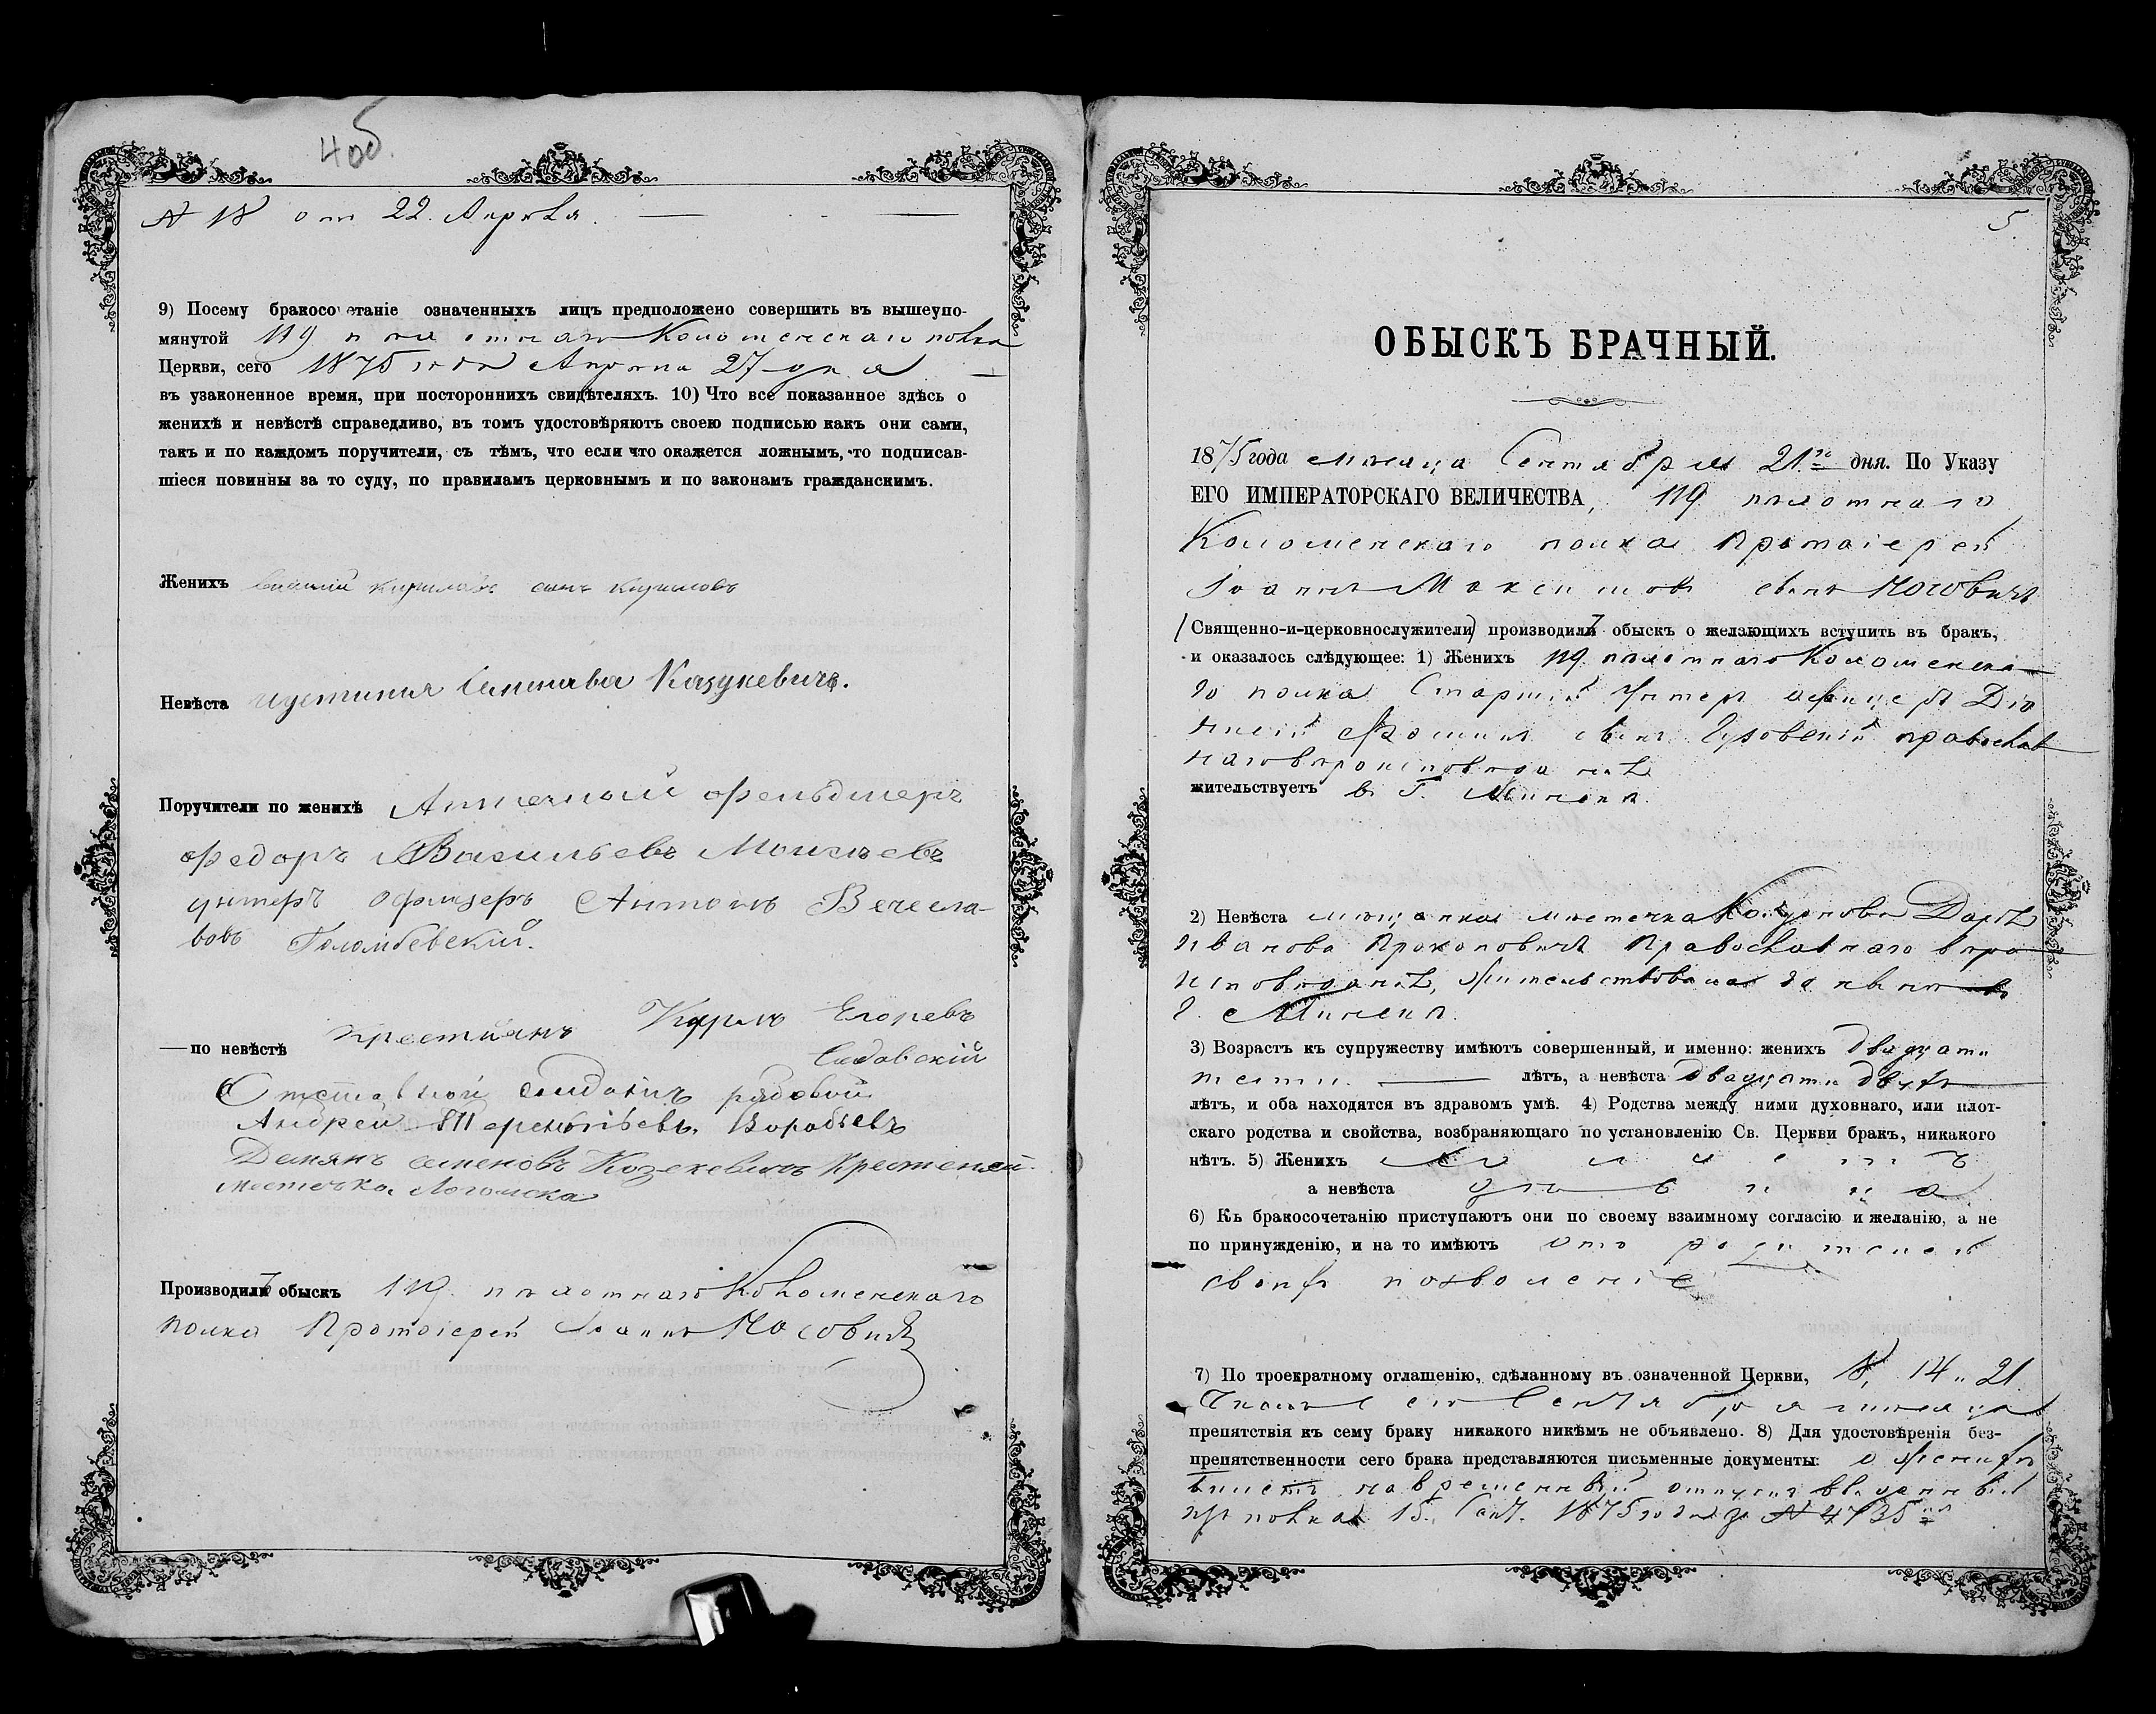 4об.
№ 18 от 22. Апрѣля.
9) Посему бракосочетаніе означенныхъ лицъ предположено совершить въ вышеупо-
мянутой 119 пѣхотнаго Коломенскаго полка
Церкви, сего 1875 года Апрѣля 27 дня
въ узаконенное время, при постороннихъ свидѣтеляхъ. 10) Что все показанное здѣсь о
женихѣ и невѣстѣ справедливо, въ томъ удостовѣряютъ своею подписью какъ они сами,
такъ и по каждомъ поручители, съ тѣмъ, что если что окажется ложнымъ, то подписав-
шіеся повинны за то суду, по правиламъ церковнымъ и по законамъ гражданскимъ.
Женихъ сынъ Кириловъ
Невѣста Иустинія Казукевичъ.
Поручители по женихѣ Аптечный фельдшеръ
Федоръ Васильевъ Моисеевъ
унтеръ офицеръ Антонъ Вечесла-
вовъ Голомбевскій.
—по невѣстѣ крестйянъ Карлъ Егоревъ
Садовскій
Отставной солдатъ рядовой
Андрей Терентьевъ Воробьевъ
Демянъ семеновъ Козекевичъ
местечка Логойска
Производилъ обыскъ 119. пѣхотнаго Коломенскаго
полка Протоіерей Іоаннъ Часовичъ
5
ОБЫСКЪ БРАЧНЫЙ.
1875 года мѣсяца Сентября 21го дня. По Указу
ЕГО ИМПЕРАТОРСКАГО ВЕЛИЧЕСТВА, 119 пѣхотнаго
Коломенскаго полка Протоіерей
Іоаннъ Максимовъ сынъ Часовичъ
(Священно-и-церковнослужители) производилъ обыскъ о желающихъ вступить въ бракъ,
и оказалось слѣдующее: 1) Женихъ 119. пѣхотнаго Коломенска-
го полка Старшій Унтеръ офицеръ Діо
нисій Фоминъ сынъ православ
наго вѣроисповѣданія
жительствуетъ въ Г. Минскѣ.
2) Невѣста мѣщанка мѣстечка Койданова Дарія
Иванова Прокоповичъ Православнаго вѣро
исповѣданія, жительствовала въ
г. Минскѣ.
3) Возрастъ къ супружеству имѣютъ совершенный, и именно: женихъ двадцати
шести лѣтъ, а невѣста двадцати двухъ
лѣтъ, и оба находятся въ здравомъ умѣ. 4) Родства между ними духовнаго, или плот-
скаго родства и свойства, возбраняющаго по установленію Св. Церкви бракъ, никакого
нѣтъ. 5) Женихъ холостъ
а невѣста дѣвица
6) Къ бракосочетанію приступаютъ они по своему взаимному согласію и желанію, а не
по принужденію, и на то имѣютъ отъ родителей
своихъ позволеніе
7) По троекратному оглашенію, сдѣланному въ означенной Церкви, 8, 14 и 21
Чиселъ сего Сентября мѣсяца
препятствія къ сему браку никакого никѣмъ не объявлено. 8) Для удостовѣренія без-
препятственности сего брака представляются письменные документы: о Женихѣ
билетъ на временный отпускъ выданный
изъ полка 15. Сент. 1875 года за № 4735